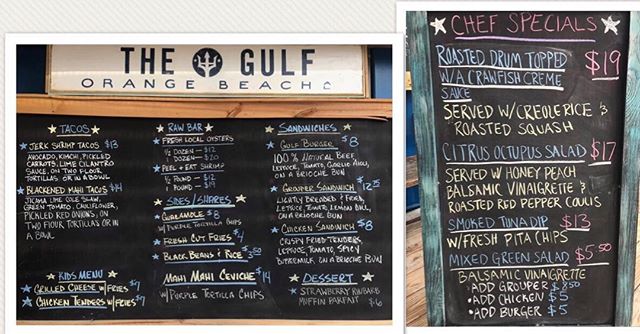 THE GULF
ORANGE BEACH
TACOS
JERK SHRIMP TACOS $13
AVOCADO, KIMCHI, PICKLED
CARROTS, LIME CILANTRO
SAUCE, ON TWO FLOUR
TORTILLAS OR IN A BOWL
BLACKENED MAHI TACOS $14
JICAMA LIME COLE SLAW,
GREEN TOMATO, CAULIFLOWER,
PICKLED RED ONIONS, ON
TWO FLOUR TORTILLAS OR IN
A BOWL
KIDS MENU
GRILLED CHEESE W/FRIES $7
CHICKEN TENDERS W/FRIES $7
RAW BAR
FRESH LOCAL OYSTERS
1/2 DOZEN - $12
1 DOZEN - $20
PEEL + EAT SHRIMP
1/2 POUND - $12
1 POUND - $19
SIDES/SHARES
GUACAMOLE $8
W/PURPLE TORTILLA CHIPS
FRESH CUT FRIES $4
BLACK BEANS & RICE $3.50
MAHI MAHI CEVICHE $14
W/PURPLE TORTILLA CHIPS
SANDWICHES
GULF BURGER $8
100% NATURAL BEEF,
LETTUCE, TOMATO, GARLIC AIOLI,
ON A BRIOCHE BUN
GROUPER SANDWICH $12.95
LIGHTLY BREADED & FRIED,
LETTUCE, TOMATO, LEMON DILL,
ON A BRIOCHE BUN
CHICKEN SANDWICH $8
CRISPY FRIED TENDERS,
LETTUCE, TOMATO, SPICY
BUTTERMILK, ON A BRIOCHE BUN
DESSERT
STRAWBERRY RHUBARB
MUFFIN PARFAIT $6
CHEF SPECIALS
ROASTED DRUM TOPPED $19
W/A CRAWFISH CREME
SAUCE
SERVED W/CREOLE RICE &
ROASTED SQUASH
CITRUS OCTUPUS SALAD $17
SERVED W/ HONEY PEACH
BALSAMIC VINAIGRETTE &
ROASTED RED PEPPER COULIS
SMOKED TUNA DIP $13
W/FRESH PITA CHIPS
MIXED GREEN SALAD $5.50
BALSAMIC VINAIGRETTE
•ADD GROUPER $8.50
•ADD CHICKEN $5
•ADD BURGER $5